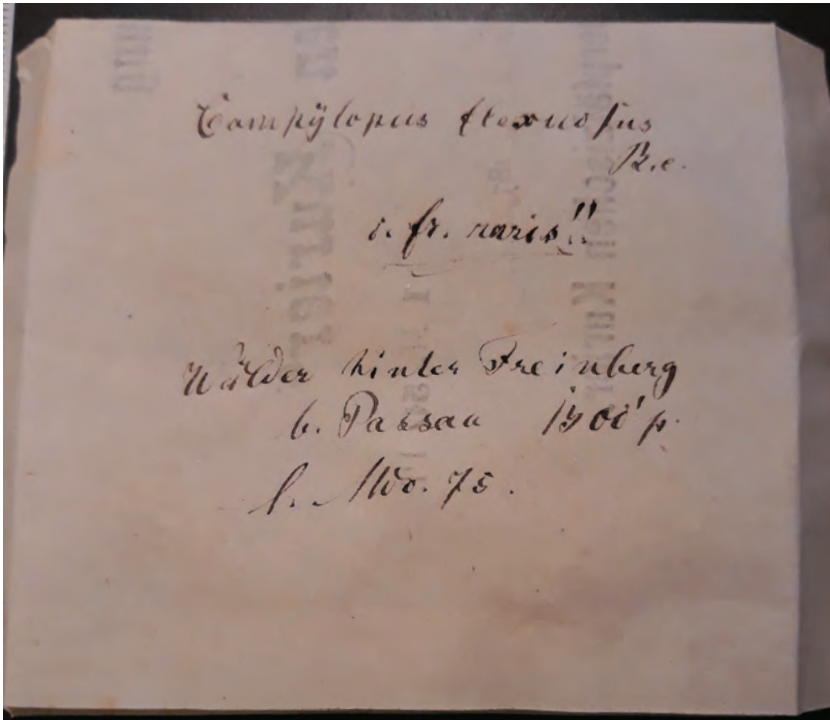 Campÿlopus flexuosus
c. fr. raris!!
Wälder hinter Freinberg
b. Passau p.
l. 75.